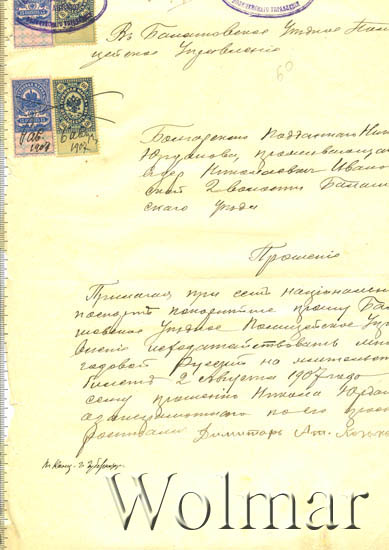 Въ Балашовское Уѣздное Поли
цейское Управленіе
60
6 Авг.
1907
6 Авг.
1907
Болгарскаго Подданнаго Ник
Юрданова, проживающа
селѣ Николаевкѣ Ивано
ской 2 волости Балаш
скаго уѣзда
Прошеніе
Прилагая при семъ національн
паспортъ покорнѣйше прошу Бал
шовское Уѣздное Полицейское Упр
вленіе исходатайствовать мнѣ
годовой Русскій на жительство
билетъ 2 Августа 1907 года
сему прошенію Никола Юрдан
а по его
Димитръ Ат.
Wolmar